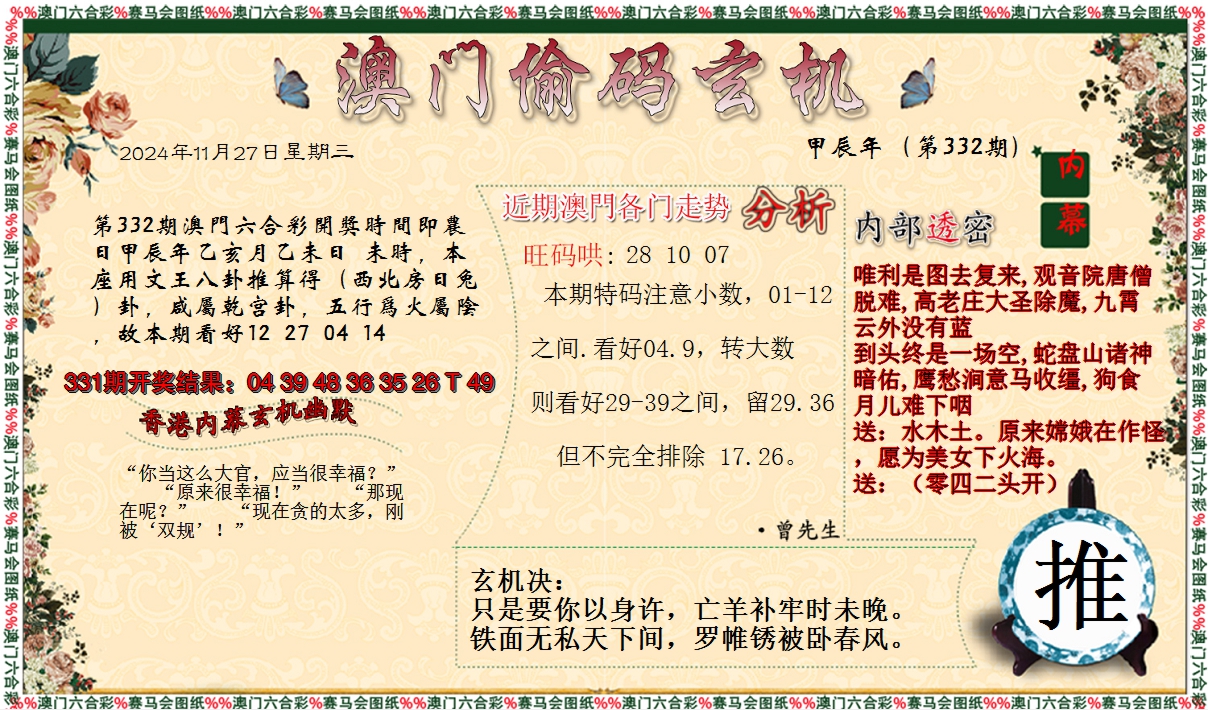 %%澳门六合彩%赛马会图纸%%澳门六合彩%赛马会图纸%%澳门六合彩%赛马会图纸%%澳门六合彩%赛马会图纸%%澳门六合彩%赛马会图纸%%澳门六合彩%赛马会图纸%%澳门六合彩%赛马会图纸%%
澳门偷码玄机
2024年11月27日星期三
甲辰年（第332期）
内幕
第332期澳門六合彩開獎時間即農
日甲辰年乙亥月乙未日 未時，本
座用文王八卦推算得（西北房日兔
）卦，咸屬乾宫卦，五行爲火屬陰
，故本期看好12 27 04 14
331期开奖结果：04 39 48 36 35 26 T 49
香港内幕玄机幽默
“你当这么大官，应当很幸福？”
“原来很幸福！” “那现
在呢？” “现在贪的太多，刚
被‘双规’！”
近期澳門各门走势 分析
旺码哄: 28 10 07
本期特码注意小数，01-12
之间.看好04.9，转大数
则看好29-39之间，留29.36
但不完全排除 17.26。
·曾先生
内部透密
唯利是图去复来,观音院唐僧
脱难,高老庄大圣除魔,九霄
云外没有蓝
到头终是一场空,蛇盘山诸神
暗佑,鹰愁涧意马收缰,狗食
月儿难下咽
送：水木土。原来嫦娥在作怪
，愿为美女下火海。
送：（零四二头开）
玄机决：
只是要你以身许，亡羊补牢时未晚。
铁面无私天下间，罗帷锈被卧春风。
推
%%澳门六合彩%赛马会图纸%%澳门六合彩%赛马会图纸%%澳门六合彩%赛马会图纸%%澳门六合彩%赛马会图纸%%澳门六合彩%赛马会图纸%%澳门六合彩%赛马会图纸%%澳门六合彩%赛马会图纸%%